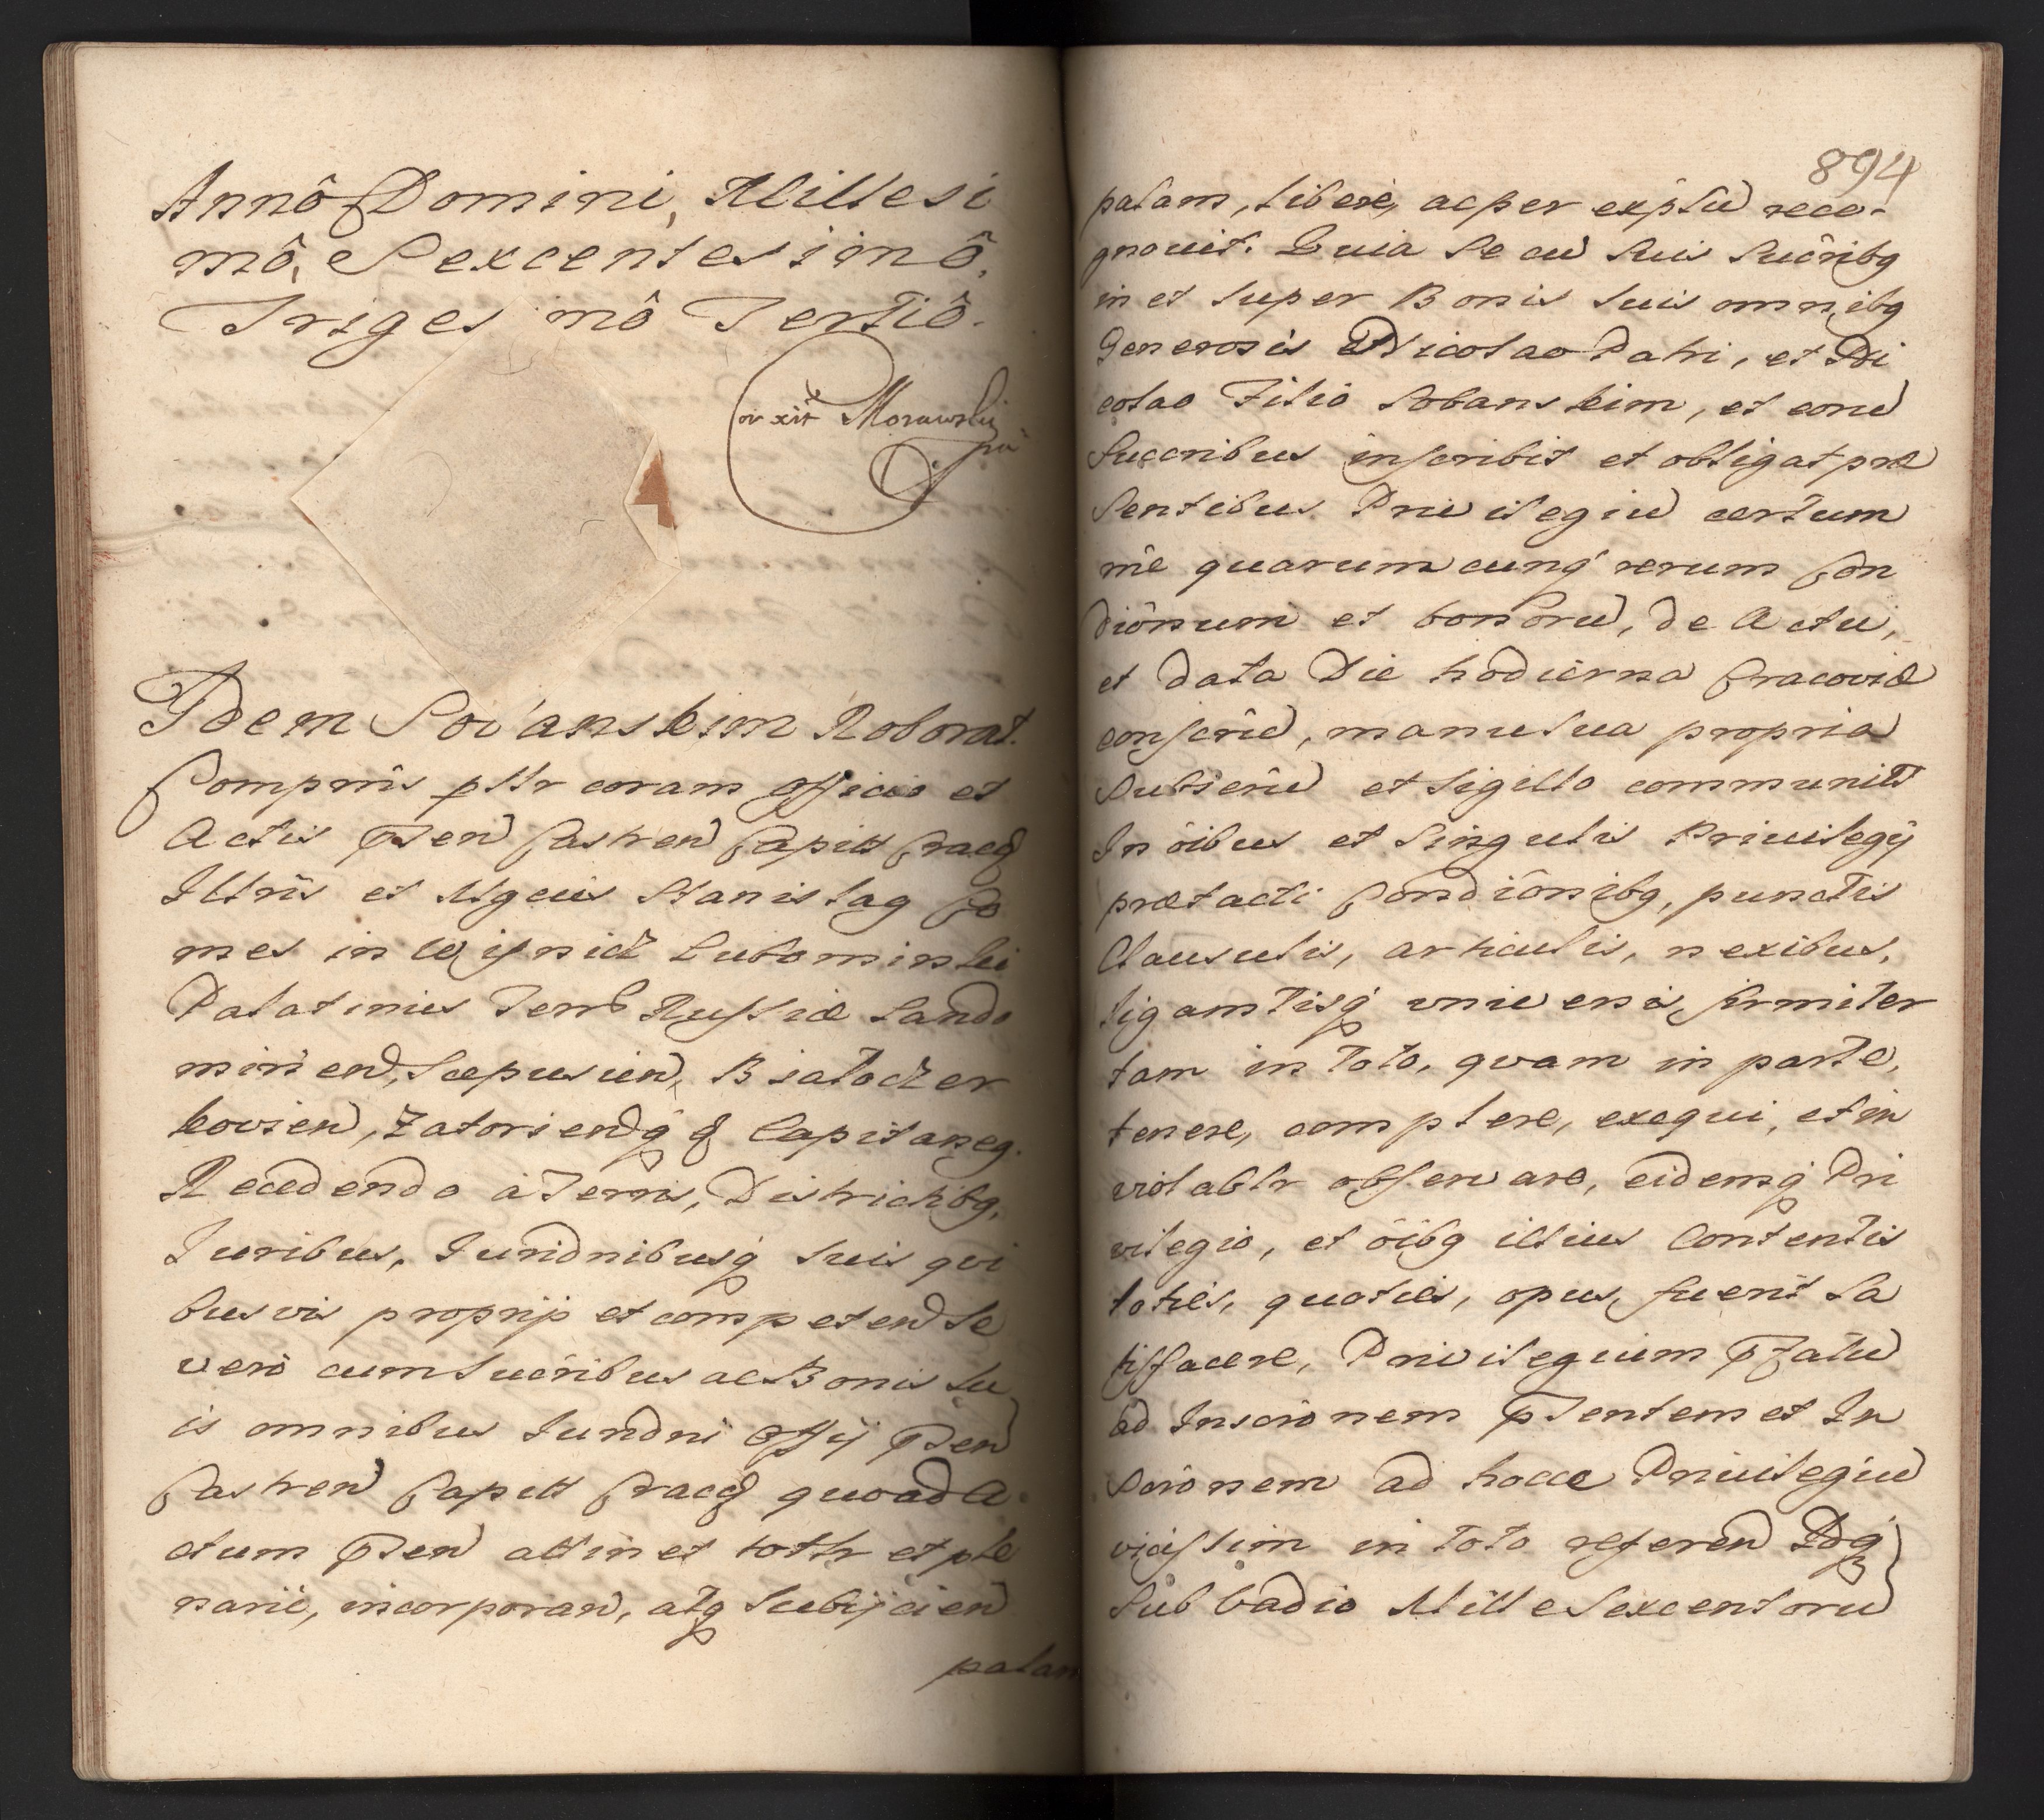 Annô Domini, Millesi
mô, Sexcentesimô,
Trigesimô Tertiô.
Correxit Morawski
mp
Idem Sobanskim Roborat.
Comprñs psltr coram officio et
Actis pñsen Castren Capitt Cracq
Illris et Mgcus Stanislaq Co
mes in Wisnicz Lubomirski
Palatinus Terr Russiæ Sando
mirien, Scepusien, Biatoczer
kovien, Zatoriensq q Capitaneq.
Recedendo à Terris, Districtibq,
Iuribus, Iuridnibusq suis qui
busvis proprijs et competen Se
vero cum sucribus ac Bonis su
is omnibus Iuridni Offij pñsen
Castren Capitt Cracq quoad A
ctum pñsen attinet totlr et ple
narie, incorporan, atq Subijcien
palam
894
palam, libere, ac per expssu reco-
gnovit. Quia Se cu suis sucribq
in et super Bonis suis omnibq
Generosis Nicolao Patri, et Ni
colao Filio Sobanskim, et eoru
Succribus inscribit et obligat præ
sentibus Privilegiu certum
rñe quarumcunq rerum Con
diõnum et bonoru, de Actu,
et data Die hodierna Cracoviæ
conscriu, manu sua propria
Subscriu et Sigillo communitu
In oibus et Singulis Privilegij
prætacti Condiõnibq, punctis
Clausulis, articulis, nexibus,
ligamtisq universis, firmiter
tam in toto, quam in parte,
tenere, complere, exequi, et in
violablr observare, eidemq Pri
vilegio, et õibq illius Contentis
toties, quoties, opus, fuerit Sa
tisfacere, Privilegium pfatu
ad Inscrionem pñsentem et In
Scrionem ad hocce Privilegiu
vicissim in toto referen Idq
Sub Vadio Mille Sexcentoru